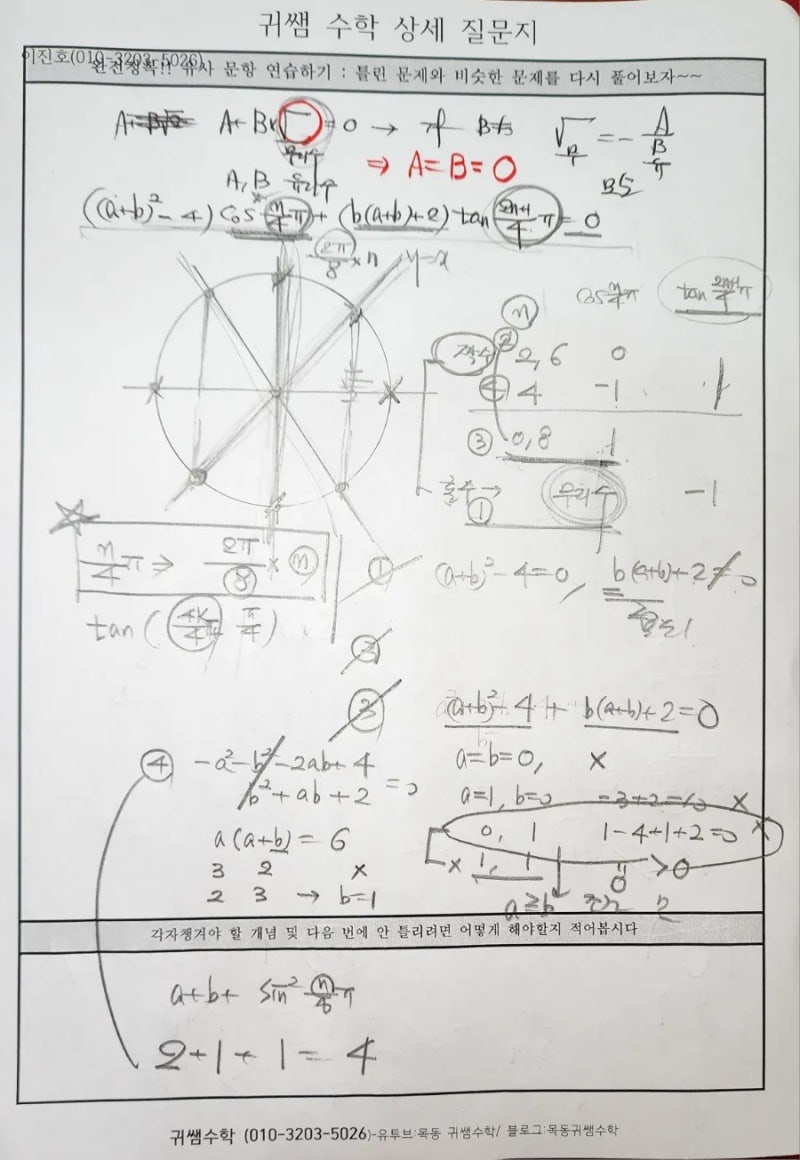 귀쌤 수학 상세 질문지
이진호(010-3203-5026)
완전정복!! 유사 문항 연습하기 : 틀린 문제와 비슷한 문제를 다시 풀어보자~~
A+B√ = 0 →
무리수
A, B 유리수
⇒ A=B=0
√ = - A/B
모순
((a+b)²-4) cos n/4 π + (b(a+b)+2) tan 2n+1/4 π = 0
2π/8 × n
y=x
cos n/4 π tan 2n+1/4 π
n
짝수 ② 2, 6 0
④ 4 -1 1
③ 0, 8 1
홀수 → 무리수 -1
①
n/4 π ⇒ 2π/8 × n
① (a+b)²-4=0, b(a+b)+2≠0
②
③ (a+b)²-4 + b(a+b)+2=0
a=b=0, ×
a=1, b=0 ×
0, 1 1-4+1+2=0 ×
× 1, 1 >0
0
a≥b
④ -a²-b²-2ab+4
b²+ab+2 =0
a(a+b) = 6
3 2 ×
2 3 → b=1
각자챙겨야 할 개념 및 다음 번에 안 틀리려면 어떻게 해야할지 적어봅시다
a+b+ sin² n/8 π
2+1+1=4
귀쌤수학 (010-3203-5026)-유투브:목동 귀쌤수학/ 블로그:목동귀쌤수학